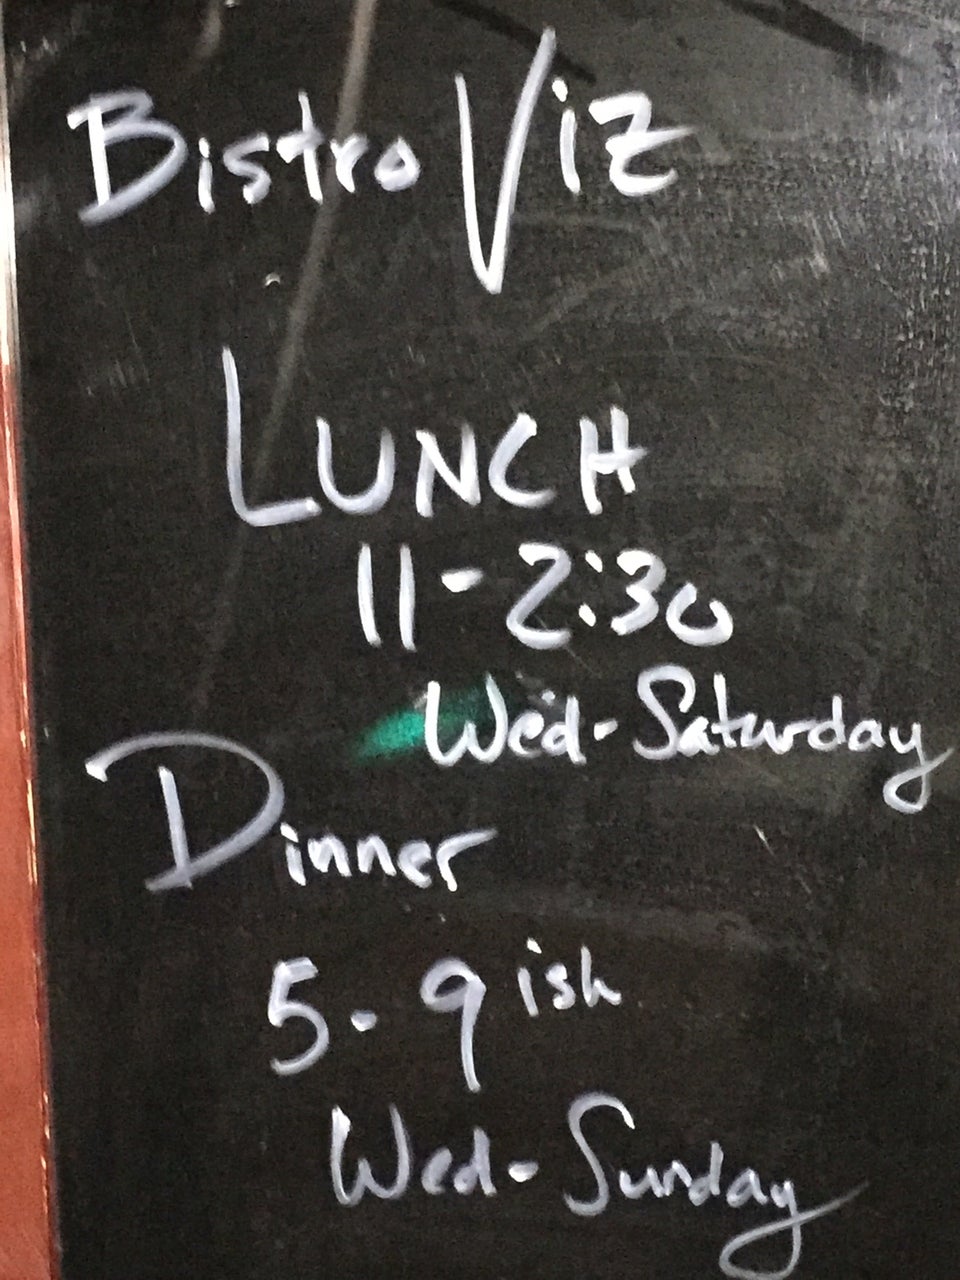 Bistro Viz
LUNCH
11-2:30
Wed-Saturday
Dinner
5-9ish
Wed-Sunday